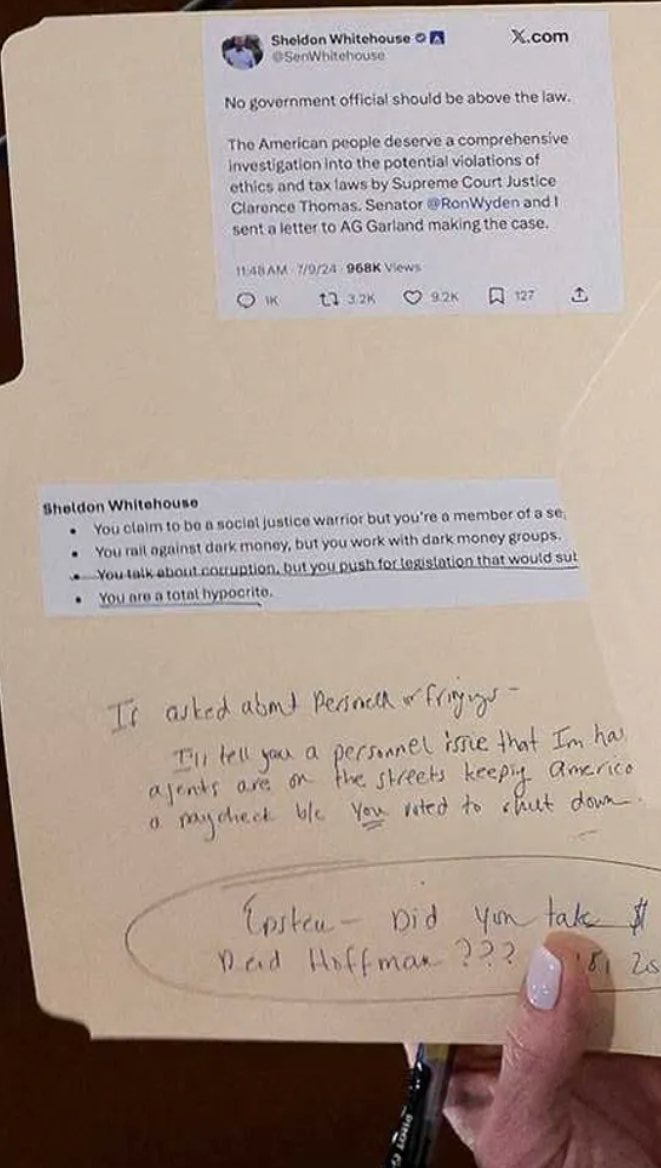 Sheldon Whitehouse
X.com
@SenWhitehouse
No government official should be above the law.
The American people deserve a comprehensive
investigation into the potential violations of
ethics and tax laws by Supreme Court Justice
Clarence Thomas. Senator @RonWyden and I
sent a letter to AG Garland making the case.
11:48 AM · 7/9/24 · 968K Views
1K 3.2K 9.2K 127
Sheldon Whitehouse
• You claim to be a social justice warrior but you're a member of a se
• You rail against dark money, but you work with dark money groups.
• You talk about corruption, but you push for legislation that would sub
• You are a total hypocrite.
If asked about Personnel or firings -
I'll tell you a personnel issue that Im ha
agents are on the streets keeping America
a paycheck b/c You voted to shut down.
Epstein - Did you take $
Reid Hoffman ???
PILOT G